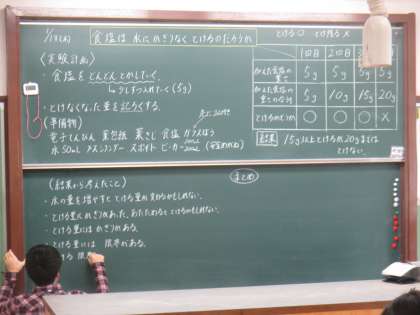 1/13(火) 食塩は水にかぎりなくとけるのだろうか
とける○ とけ残る×
〈実験計画〉
・食塩をどんどんとかしていく。
少しずつ入れていく(5g)
・とけなくなった量を記ろくする。
〈準備物〉
電子てんびん 薬包紙 薬さじ 食塩 ガラスぼう
水50mL メスシリンダー スポイト ビーカー
1回目 2回目
加えた食塩の重さ 5g 5g 5g 5g
加えた食塩の重さの合計 5g 10g 15g 20g
とけるかどうか ○ ○ ○ ×
結果 15g以上とけるが20gまでは
とけない。
まとめ
〈結果から考えたこと〉
・水の量を増やすととける量が変わるかもしれない。
・とける量にかぎりがあった。あたためるととけるかもしれない。
・とける量にはかぎりがある。
・とける量には限界がある。
とける 限